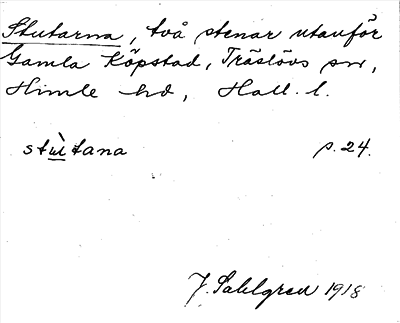 Stutarna, två stenar utanför
Gamla Köpstad, Träslövs sn,
Himle hd, Hall. l.
stùtana p. 24.
J. Sahlgren 1918